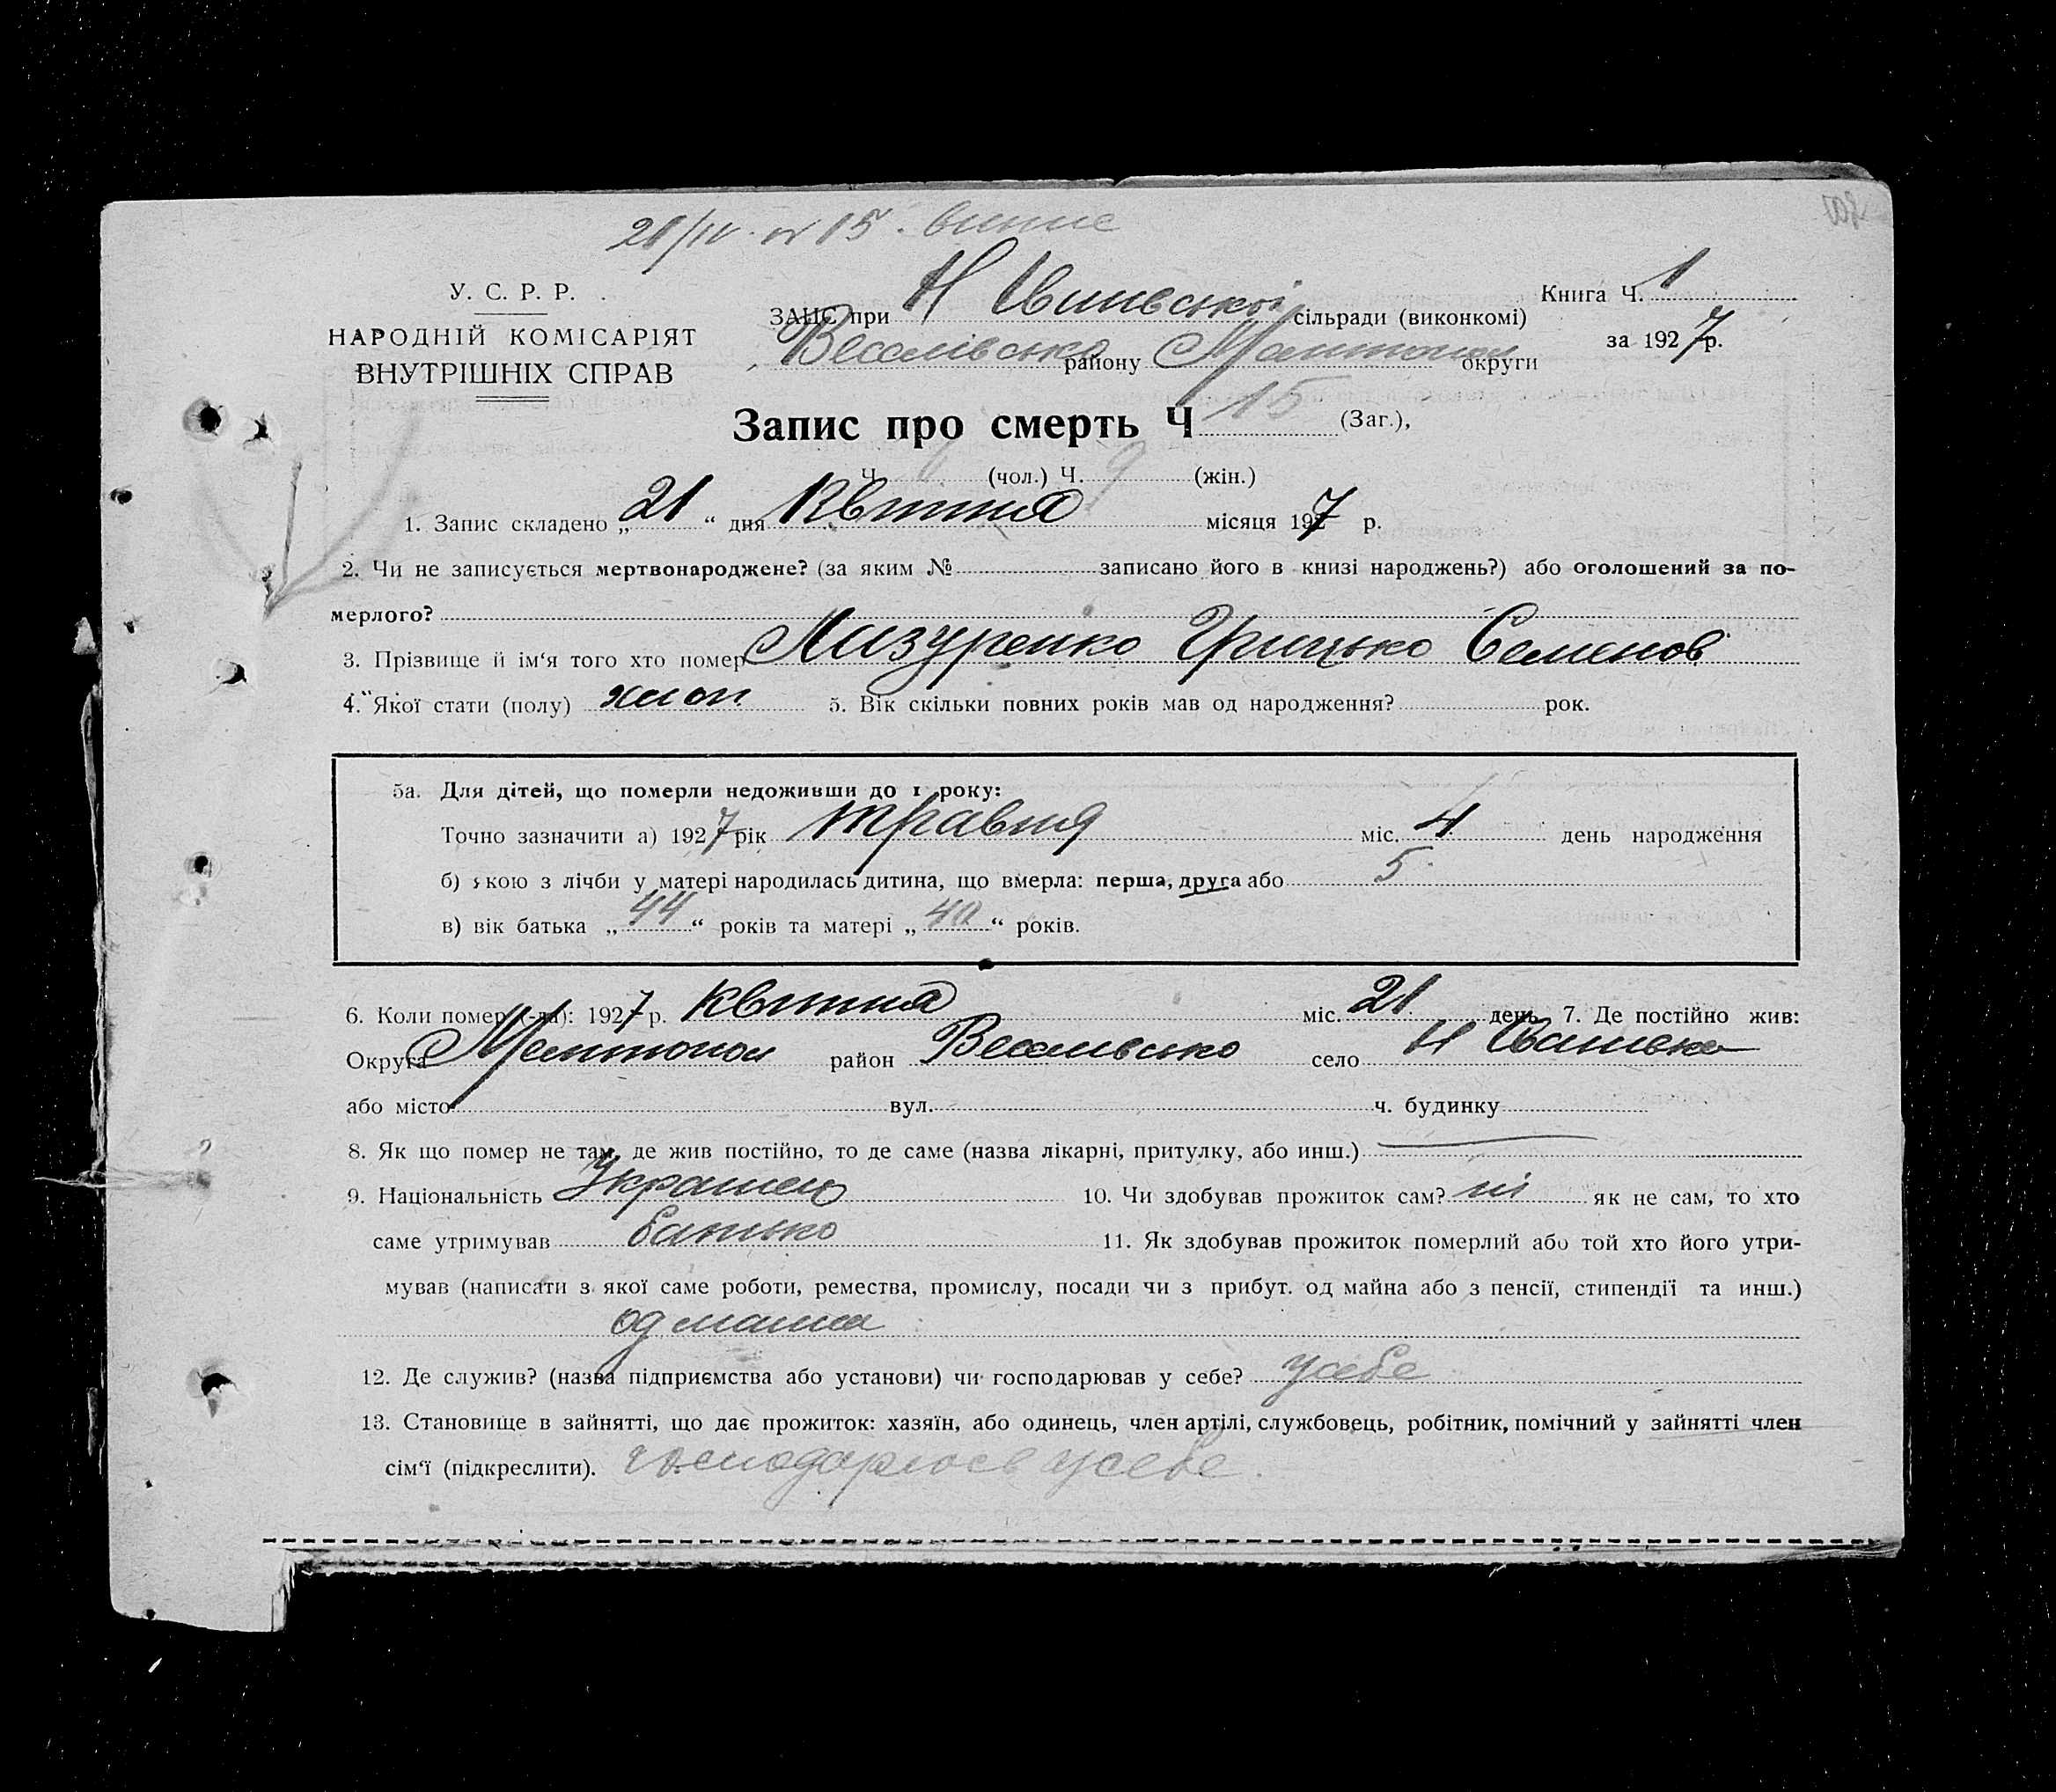 21/IV. № 15.
У. С. Р. Р.
НАРОДНІЙ КОМІСАРІЯТ
ВНУТРІШНІХ СПРАВ
ЗАЦС при Н сільради (виконкомі)
Веселівсько району Мелитопол округи
Книга Ч. 1
за 1927 р.
Запис про смерть Ч 15 (Заг.),
Ч. (чол.) Ч. 9 (жін.)
1. Запис складено „ 21 “ дня Квітня місяця 1927 р.
2. Чи не записується мертвонароджене? (за яким № записано його в книзі народжень?) або оголошений за по-
мерлого?
3. Прізвище й ім‘я того хто помер Мизуренко Грицько Семенов
4. Якої стати (полу) хлоп. 5. Вік скільки повних років мав од народження? рок.
5а. Для дітей, що померли недоживши до 1 року:
Точно зазначити а) 1927 рік травня міс. 4 день народження
б) якою з лічби у матері народилась дитина, що вмерла: перша, друга або 5
в) вік батька „ 44 “ років та матері „ 40 “ років.
6. Коли помер (-ла): 1927 р. квітня міс. 21 день 7. Де постійно жив:
Округа Мелитопол район Веселивсько село Н
або місто вул. ч. будинку
8. Як що помер не там, де жив постійно, то де саме (назва лікарні, притулку, або инш.)
9. Національність Украінец 10. Чи здобував прожиток сам? ні як не сам, то хто
саме утримував батько 11. Як здобував прожиток померлий або той хто його утри-
мував (написати з якої саме роботи, ремества, промислу, посади чи з прибут. од майна або з пенсії, стипендії та инш.)
од маина
12. Де служив? (назва підприємства або установи) чи господарював у себе? усебе
13. Становище в зайнятті, що дає прожиток: хазяїн, або одинець, член артілі, службовець, робітник, помічний у зайнятті член
сім‘ї (підкреслити). усебе.